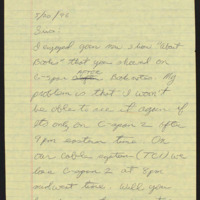 Sirs:
I enjoyed your new show "Book
" that you shared on
C-span after Booknotes. My
problem is that I won't
be able to see it again if
it's only on C-span 2 after
9pm eastern time. On
our cable system (TCI) we
lose C-span 2 at 8pm
midwest time. Will you